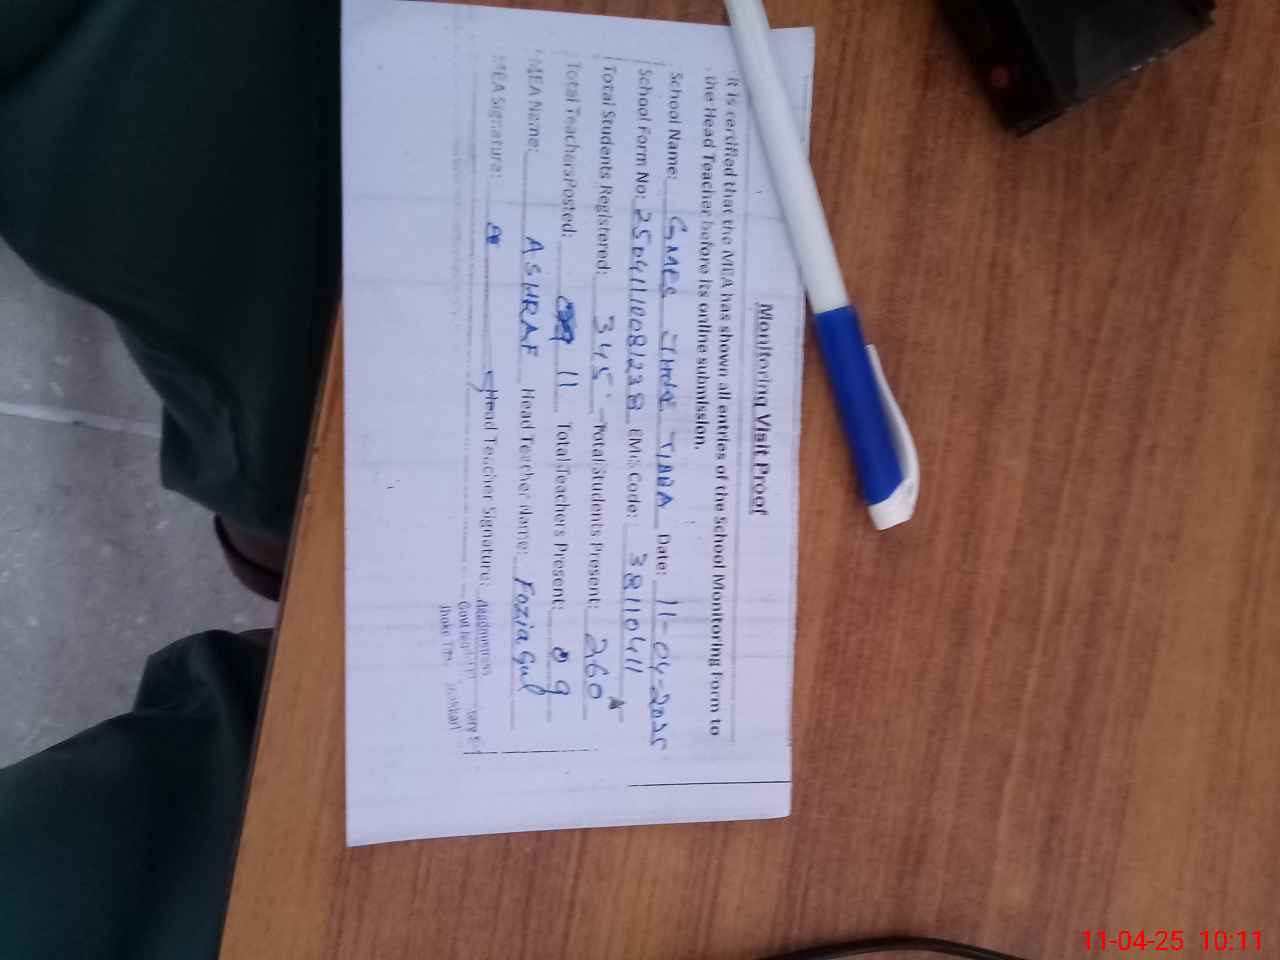 Monitoring Visit Proof
It is certified that the MEA has shown all entries of the School Monitoring Form to
the Head Teacher before its online submission.
School Name: GMPS JHOK TIBBA Date: 11-04-2025
School Form No: EMIS Code: 38110411
Total Students Registered: 345 Total Students Present: 260
Total TeachersPosted: 11 Total Teachers Present: 09
MEA Name: ASHRAF Head Teacher Name: Fozia Gul
MEA Signature: Head Teacher Signature:
Headmistress
Govt
Jhoke
11-04-25 10:11